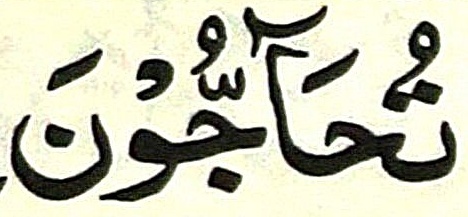 تُحَآجُّوْنَ